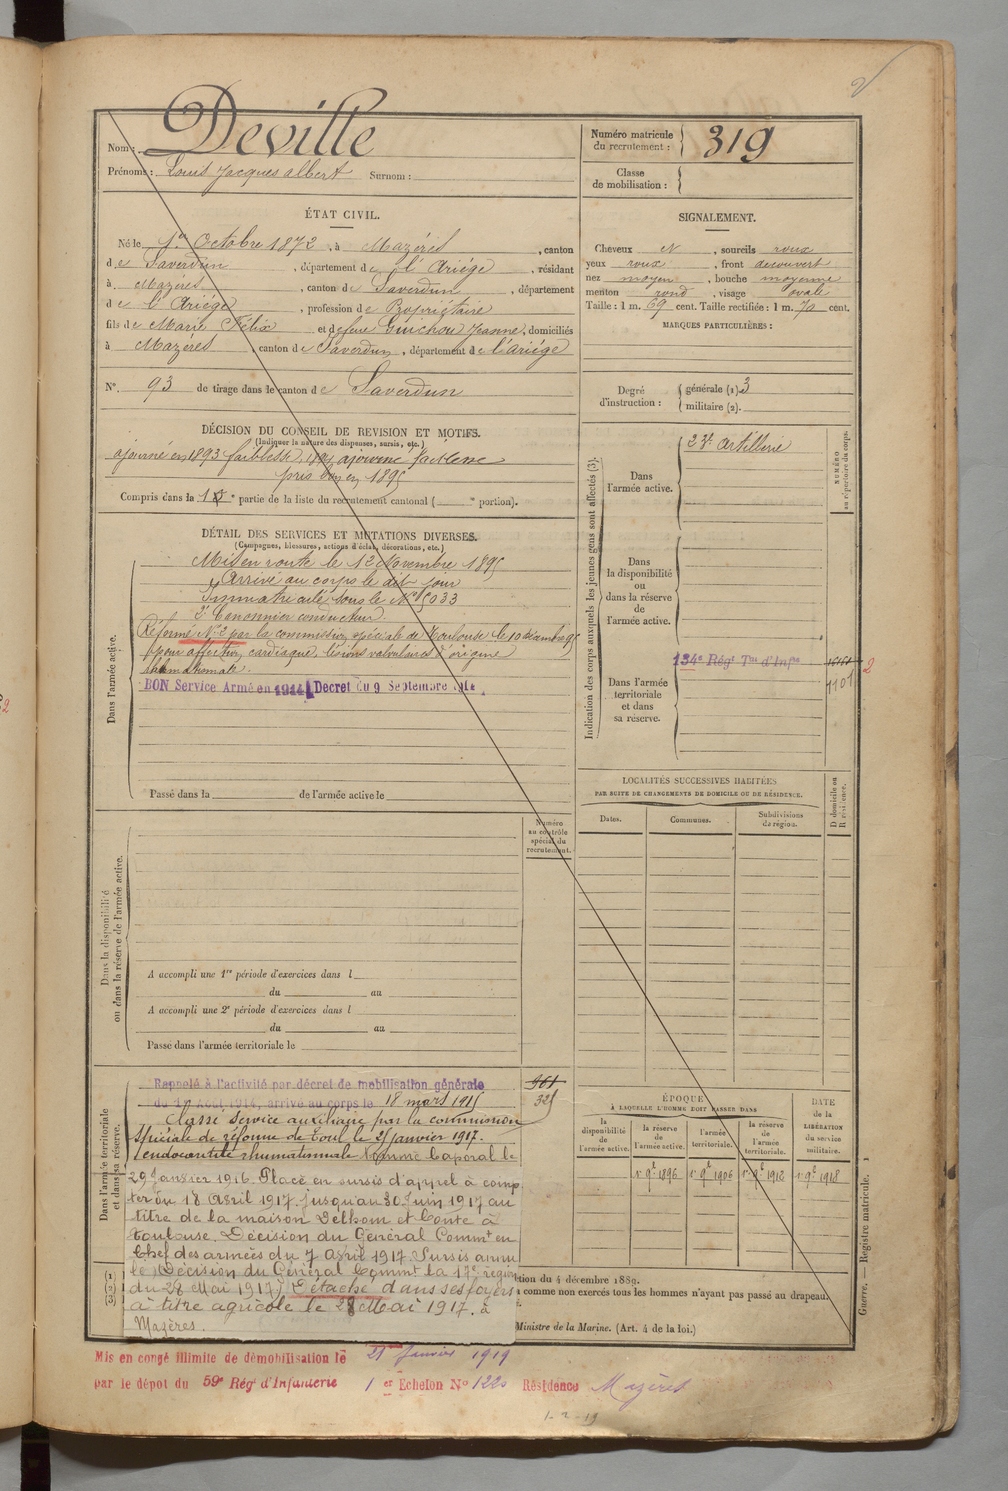 Nom : Deville
Prénoms : Louis Jacques albert Surnom :
Numéro matricule du recrutement : 319
Classe de mobilisation :
ÉTAT CIVIL.
Né le 1er Octobre 1872, à Mazérés, canton
de Saverdun, département de l'Ariége, résidant
à Mazérés, canton de Saverdun, département
de l'Ariége, profession de Propriétaire
fils de Marie Félix et de feue Guichou Jeanne, domiciliés
à Mazérés, canton de Saverdun, département de l'ariége
N° 93 de tirage dans le canton de Saverdun
SIGNALEMENT.
Cheveux N, sourcils roux
yeux roux, front decouvert
nez moyen, bouche moyenne
menton rond, visage ovale
Taille : 1 m. 69 cent. Taille rectifiée : 1 m. 70 cent.
MARQUES PARTICULIÈRES :
Degré d'instruction : générale (1) 3
militaire (2).
DÉCISION DU CONSEIL DE REVISION ET MOTIFS.
(Indiquer la nature des dispenses, sursis, etc.)
ajourné en 1893 faiblesse, 1894 ajourné faiblesse
pris bon en 1895
Compris dans la 1e partie de la liste du recrutement cantonal ( e portion).
DÉTAIL DES SERVICES ET MUTATIONS DIVERSES.
(Campagnes, blessures, actions d'éclat, décorations, etc.)
Dans l'armée active.
Mis en route le 12 Novembre 1895
Arrivé au corps le dit jour
Immatriculé sous le N° 5033
2e Canonnier conducteur.
Réformé N° 2 par la commission spéciale de Toulouse le 10 décembre 95
(pour affection cardiaque, lésions valvulaires d'origine
rhumatismale).
BON Service Armé en 1914 Decret du 9 Septembre 1914
Passé dans la de l'armée active le
Indication des corps auxquels les jeunes gens sont affectés (3).
NUMÉRO au répertoire du corps.
Dans l'armée active.
23e artillerie
Dans la disponibilité ou dans la réserve de l'armée active.
Dans l'armée territoriale et dans sa réserve.
134e Régt Tal d'Infie
2
LOCALITÉS SUCCESSIVES HABITÉES
PAR SUITE DE CHANGEMENTS DE DOMICILE OU DE RÉSIDENCE.
Dates. Communes. Subdivisions de région. D domicile ou R résidence.
Numéro au contrôle spécial du recrutement.
Dans la disponibilité ou dans la réserve de l'armée active.
A accompli une 1re période d'exercices dans l
du au
A accompli une 2e période d'exercices dans l
du au
Passé dans l'armée territoriale le
Dans l'armée territoriale et dans sa réserve.
Rappelé à l'activité par décret de mobilisation générale
du 1er Août 1914, arrivé au corps le 18 mars 1915
961
325
Classé service auxiliaire par la commission
spéciale de réforme de Toul le 31 janvier 1917.
(endocardite rhumatismale) Nommé Caporal le
29 Janvier 1916. Placé en sursis d'appel à comp
ter du 18 Avril 1917. Jusqu'au 30 Juin 1917 au
titre de la maison Delhom et Conte à
Toulouse. Décision du Général Commt en
Chef des armées du 7 Avril 1917. Sursis annu
lé (Décision du Général Commt la 17e région
du 28 Mai 1917). Détaché dans ses foyers
à titre agricole le 28 Mai 1917. à
Mazères.
ÉPOQUE
À LAQUELLE L'HOMME DOIT PASSER DANS
la disponibilité de l'armée active. la réserve de l'armée active. l'armée territoriale. la réserve de l'armée territoriale.
DATE de la LIBÉRATION du service militaire.
1er 9bre 1896 1er 9bre 1906 1er 9bre 1912 1er 9bre 1918
(1)
(2)
(3)
tion du 4 décembre 1889.
comme non exercés tous les hommes n'ayant pas passé au drapeau.
Ministre de la Marine. (Art. 4 de la loi.)
Guerre. — Registre matricule. 1
Mis en congé illimité de démobilisation le 21 Janvier 1919
par le dépot du 59e Régt d'Infanterie 1er Echelon N° 1220 Résidence Mazères
1-2-19